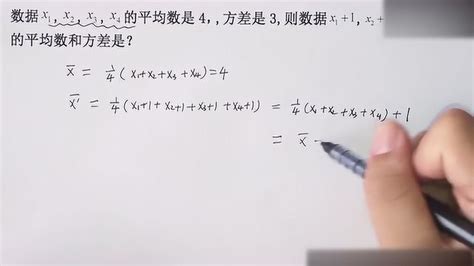 数据 x₁, x₂, x₃, x₄ 的平均数是 4, , 方差是 3, 则数据 x₁+1, x₂+
的平均数和方差是?
x̄ = ¼ ( x₁+x₂+x₃+x₄) = 4
x̄' = ¼ (x₁+1 + x₂+1 + x₃+1 + x₄+1) = ¼ (x₁+x₂+x₃+x₄) + 1
= x̄